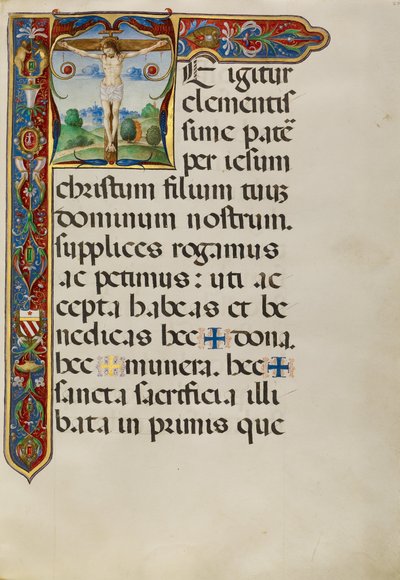 TE igitur
clementis
sime patē
per iesum
christum filium tuuʒ
dominum nostrum.
supplices rogamus
ac petimus: uti ac
cepta habeas et be
nedicas hec ✠ dona.
hec ✠ munera. hec ✠
sancta sacrificia illi
bata in primis que